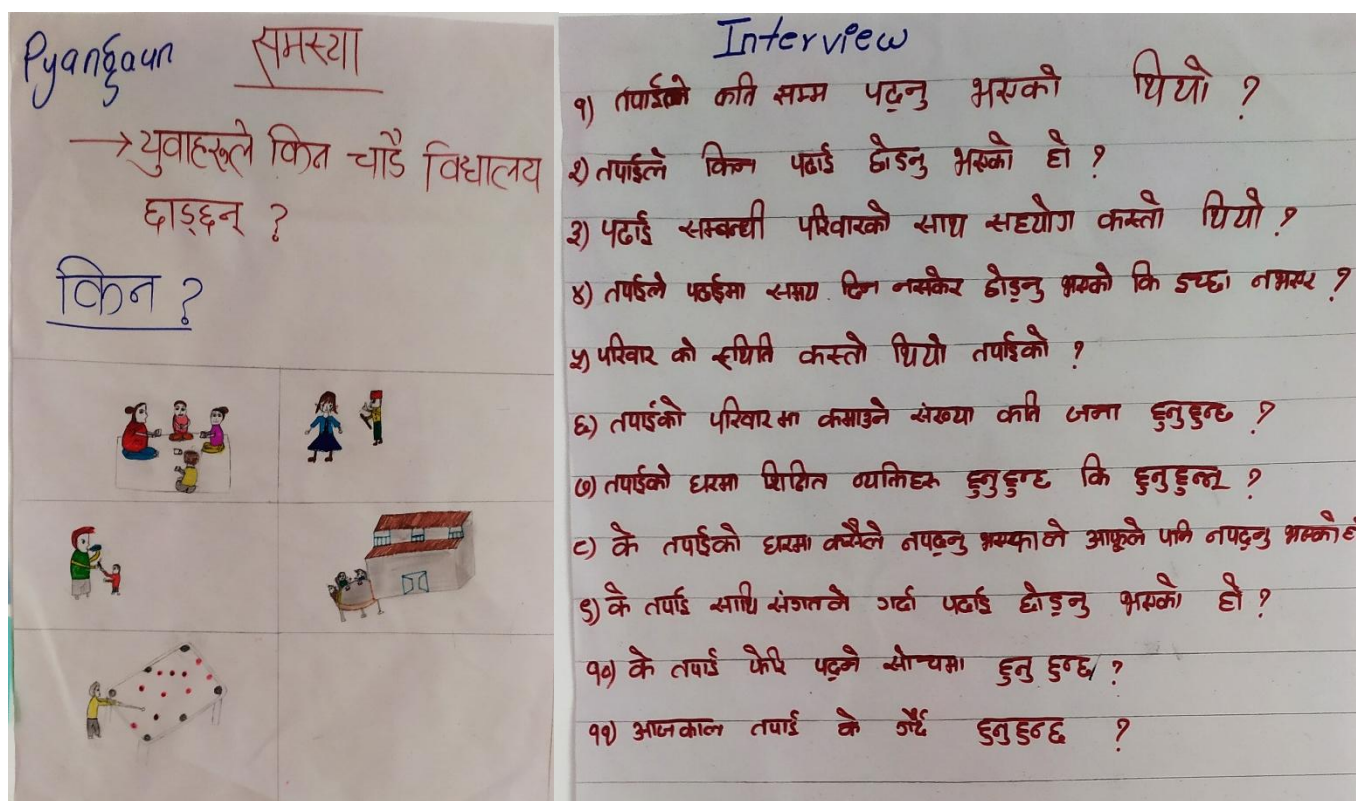 Pyangaun
समस्या
→ युवाहरूले किन चाडै विद्यालय
छाड्छन् ?
किन ?
Interview
१) तपाईले कति सम्म पढ्नु भएको थियो ?
२) तपाईले किन पढाई छोड्नु भएको हो ?
३) पढाई सम्बन्धी परिवारको साथ सहयोग कस्तो थियो ?
४) तपाईले पढाईमा समय दिन नसकेर छोड्नु भएको कि इच्छा नभएर ?
५) परिवार को स्थिति कस्तो थियो तपाईको ?
६) तपाईको परिवारमा कमाउने संख्या कति जना हुनुहुन्छ ?
७) तपाईको घरमा शिक्षित व्यक्तिहरु हुनुहुन्छ कि हुनुहुन्न ?
८) के तपाईको घरमा कसैले नपढ्नु भएकाले आफूले पनि नपढ्नु भएको हो
९) के तपाई साथि संगतले गर्दा पढाई छोड्नु भएको हो ?
१०) के तपाई फेरि पढ्ने सोचमा हुनु हुन्छ ?
११) आजकाल तपाई के गर्दै हुनुहुन्छ ?